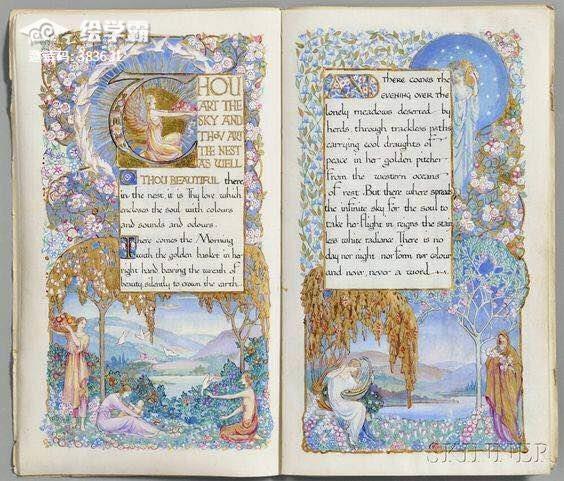 绘学霸
邀请码: 383632
THOU
ART THE
SKY AND
THOU ART
THE NEST
AS WELL
O THOU BEAUTIFUL there
in the nest, it is Thy love which
encloses the soul with colours
and sounds and odours.
There comes the Morning
with the golden basket in her
right hand bearing the wreath of
beauty, silently to crown the earth.
AND THERE COMES THE
EVENING OVER THE
lonely meadows deserted by
herds, through trackless paths
carrying cool draughts of
peace in her golden pitcher
from the western oceans
of rest. But there where spreads
the infinite sky for the soul to
take her flight in reigns the stain
less white radiance. There is no
day nor night nor form nor colour
and never, never a word.
SKINNER